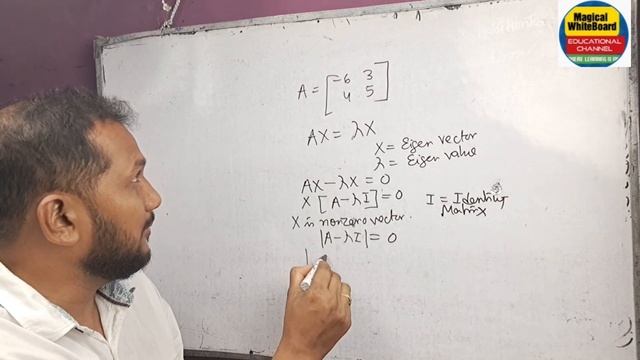 Magical
WhiteBoard
EDUCATIONAL
CHANNEL
A = [-6 3
4 5]
AX = λX
X = Eigen vector
λ = Eigen value
AX - λX = 0
X [A - λI] = 0
I = Identity
Matrix
X is nonzero vector.
|A - λI| = 0